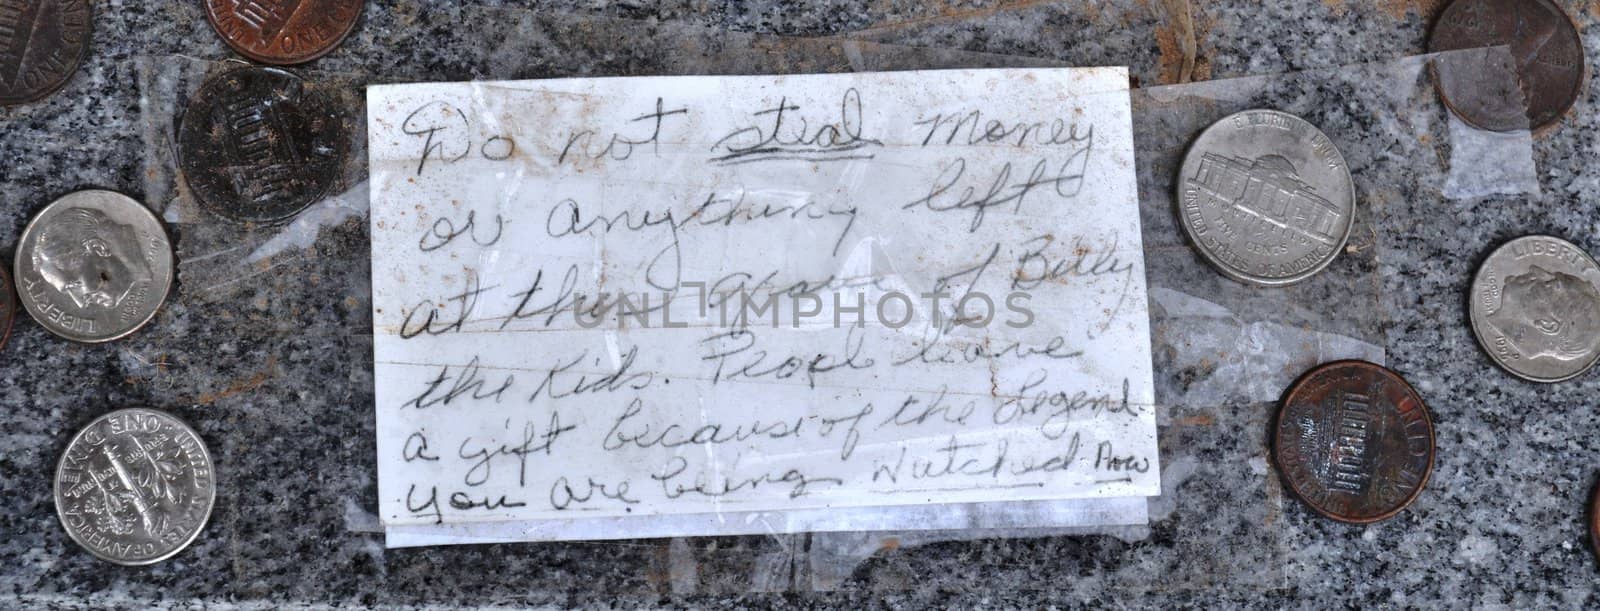 Do not steal money
or anything left
at this grave of Billy
the Kids. People leave
a gift because of the Legend.
you are being Watched Now
UNLIMPHOTOS
ONE CENT
ONE CENT
LIBERTY
ONE DIME
UNITED STATES OF AMERICA
E PLURIBUS UNUM
MONTICELLO
FIVE CENTS
UNITED STATES OF AMERICA
LIBERTY
1996
LIBERTY